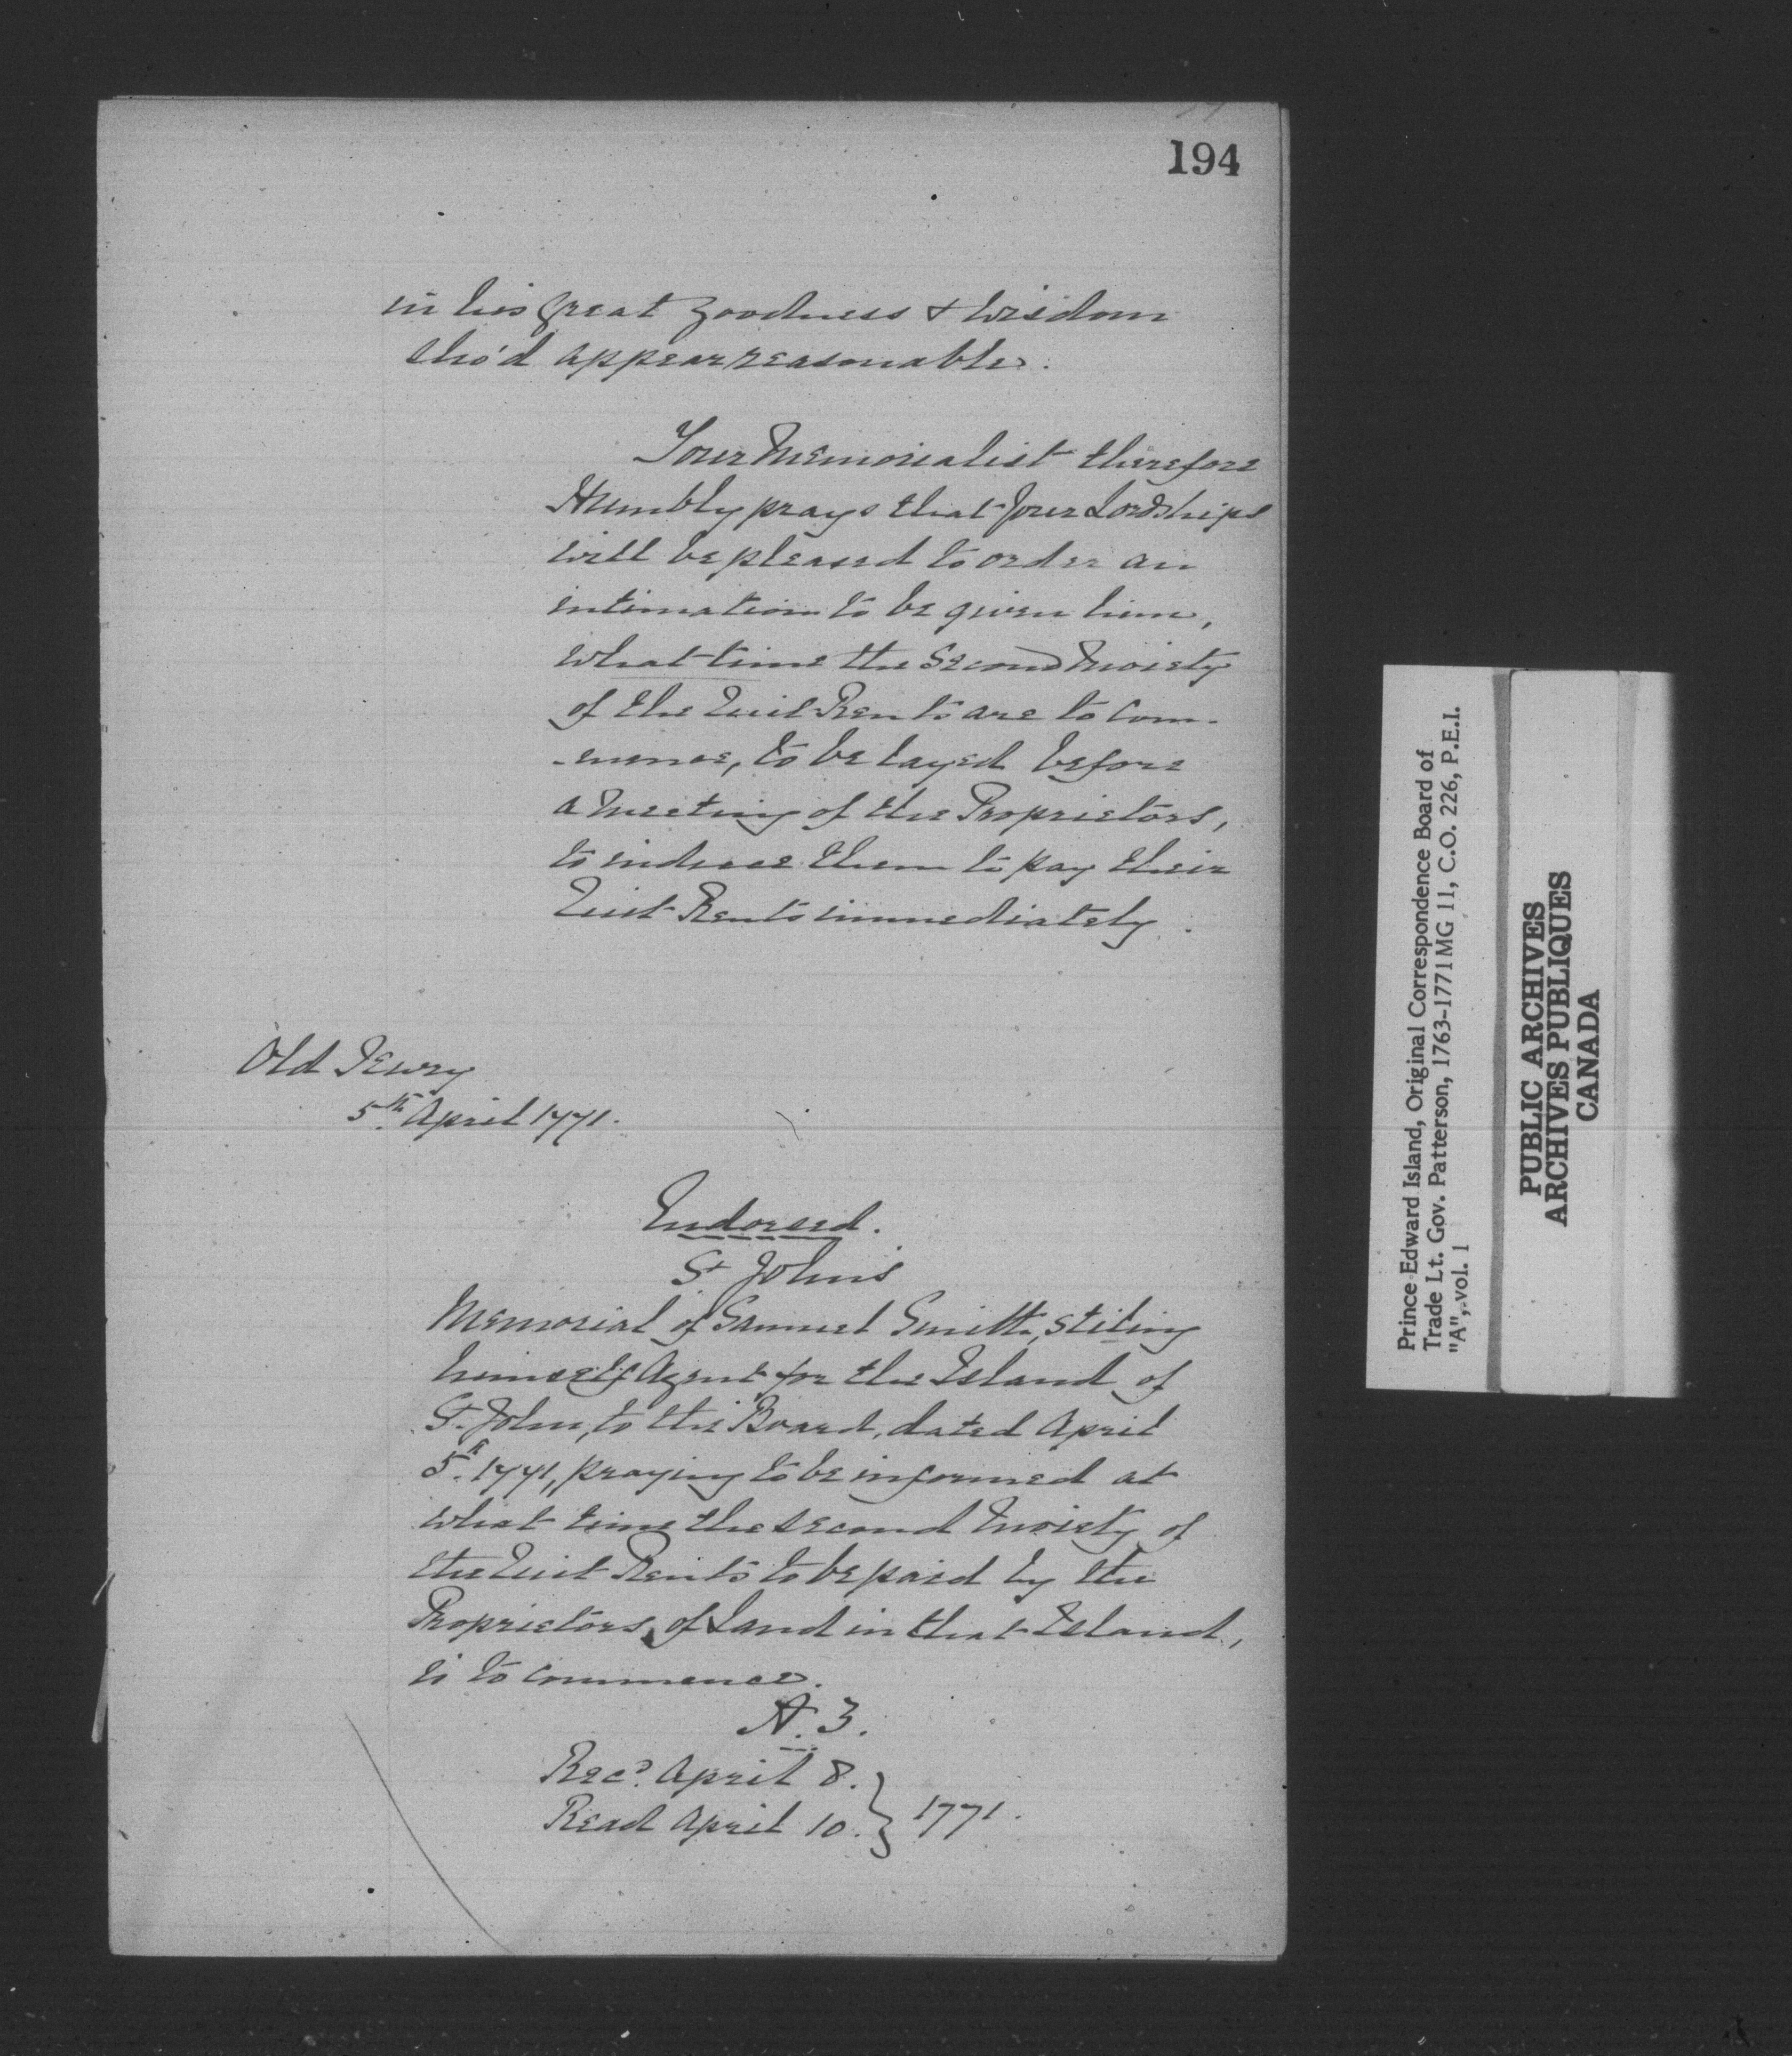 194
in his great goodness & wisdom
sho'd appear reasonable.
Your Memorialist therefore
Humbly prays that your Lordships
will be pleased to order an
intimation to be given him,
what time the Second Moiety
of the Quit Rents are to com-
-mence, to be layed before
a Meeting of the Proprietors,
to induce them to pay their
Quit Rents immediately.
Old Jewry
5th April 1771.
Endorsed.
St John's
Memorial of Samuel Smith, stiling
himself Agent for the Island of
St John, to the Board, dated April
5th 1771, praying to be informed at
what time the second Moiety of
the Quit Rents to be paid by the
Proprietors of Land in that Island,
is to commence.
A. 3.
Recd. April 8. } 1771.
Read April 10.
Prince Edward Island, Original Correspondence Board of
Trade Lt. Gov. Patterson, 1763-1771 MG 11, C.O. 226, P.E.I.
"A", vol. 1
PUBLIC ARCHIVES
ARCHIVES PUBLIQUES
CANADA